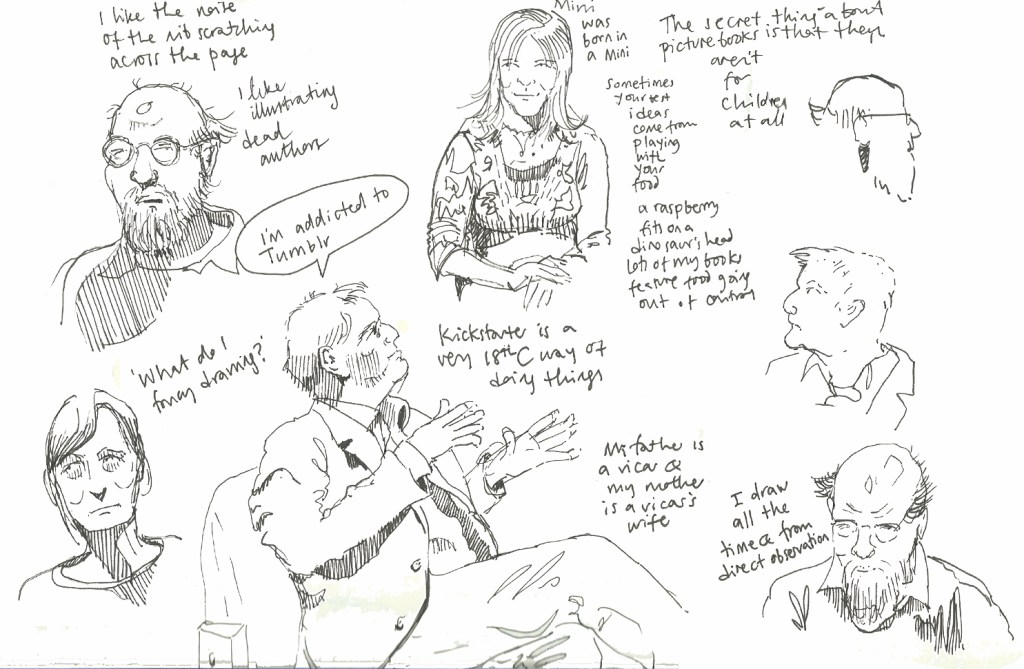 I like the noise
of the nib scratching
across the page
I like
illustrating
dead
authors
Mimi
was
born in
a Mini
The secret thing about
picturebooks is that they
aren't
for
children
at all
sometimes
your best
ideas
come from
playing
with
your
food
a raspberry
fits on a
dinosaur's head
Lots of my books
feature food going
out of control
I'm addicted to
Tumblr
'What do I
fancy drawing?'
Kickstarter is a
very 18thC way of
doing things
My father is
a vicar &
my mother
is a vicar's
wife
I draw
all the
time & from
direct observation